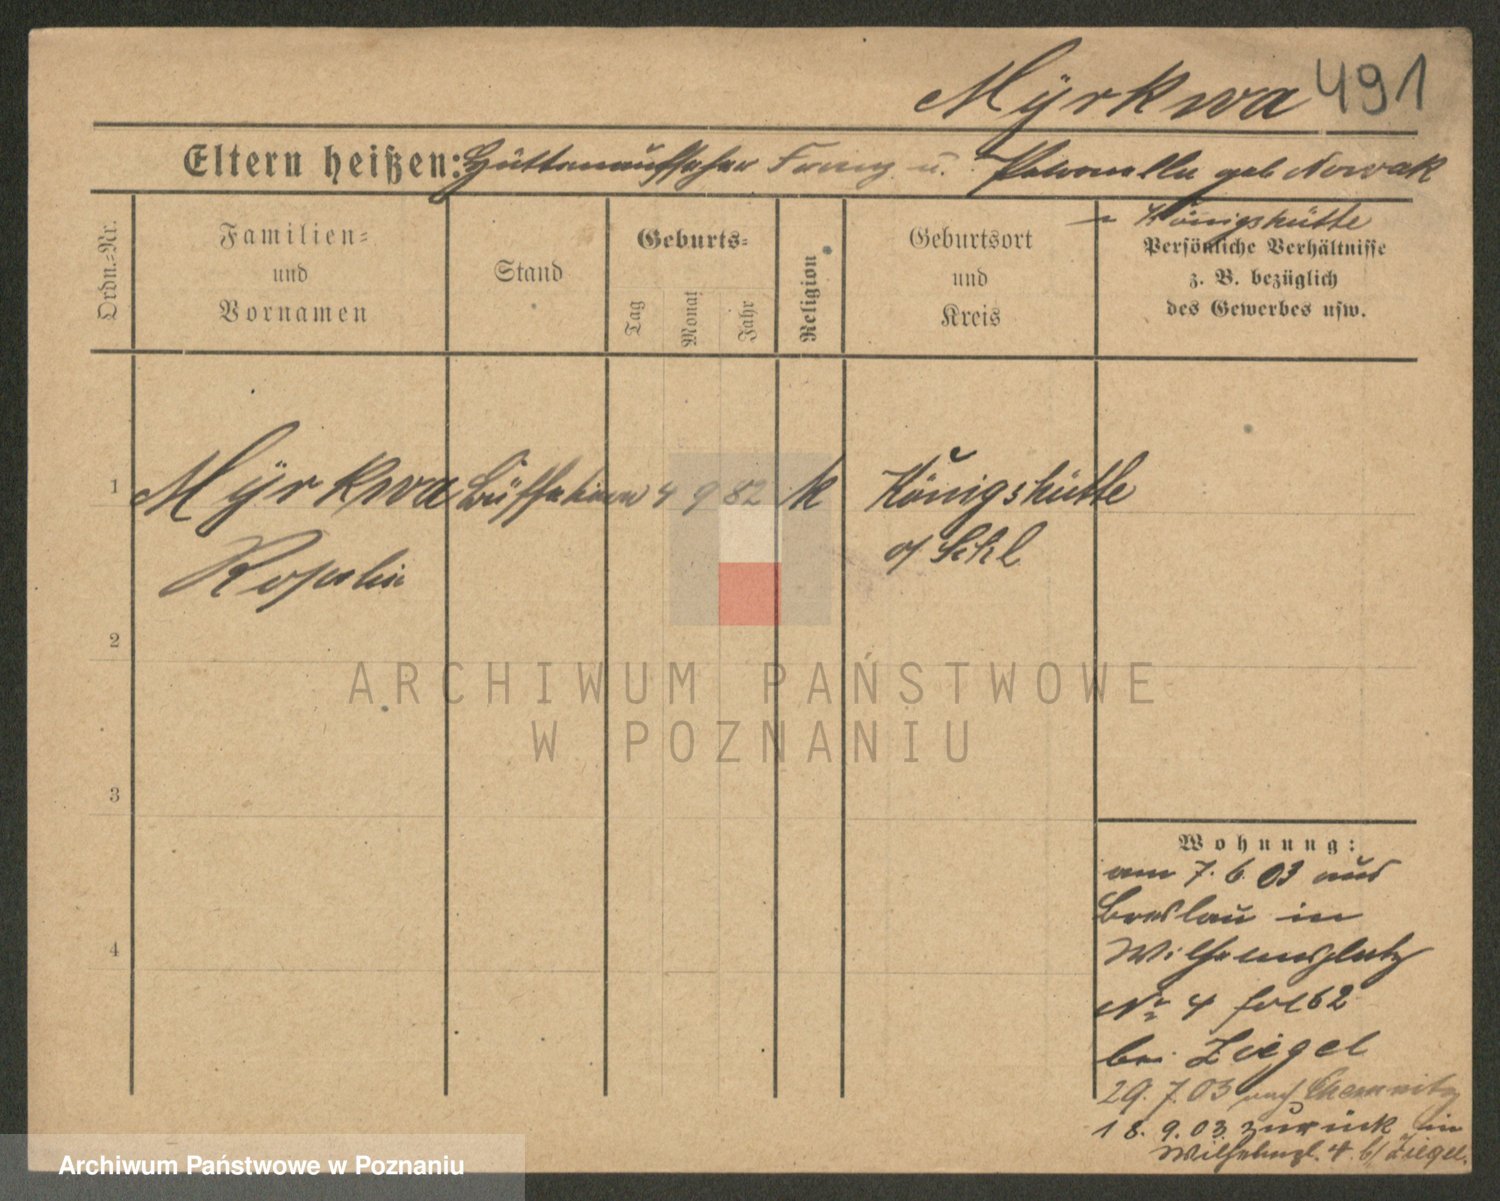 Myrkwa 491
Eltern heißen: Hüttenaufseher Franz u. Petronella geb Nowak
Königshütte
Ordn.-Nr.
Familien-
und
Vornamen
Stand
Geburts-
Tag
Monat
Jahr
Religion
Geburtsort
und
Kreis
Persönliche Verhältnisse
z. B. bezüglich
des Gewerbes usw.
1 Mÿrkwa Büffetiere 4 9 82 K Königshütte
Rosalie o/ Schl
2
3
4
Wohnung:
am 7. 6. 03 aus
Breslau in
Wilhelmsplatz
No 4 fol 62
bei Ziegel
29. 7. 03 nach Chemnitz
18. 9. 03 zurück in
Wilhelmspl. 4 b/ Ziegel.
ARCHIWUM PAŃSTWOWE
W POZNANIU
Archiwum Państwowe w Poznaniu